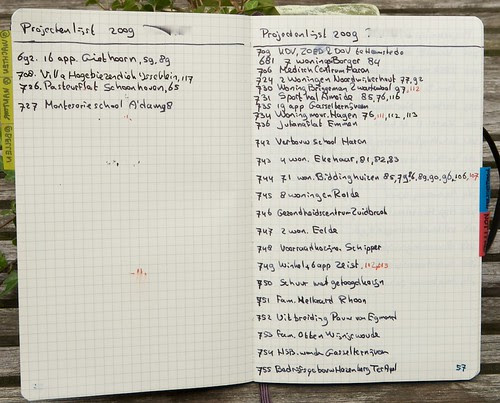 Projectenlijst 2009
692. 16 app. Giethoorn, 59, 89
708. Villa Hogebiezendick IJsselstein, 117
726. Pastourflat Schoonhoven, 65
727 Montessorie school A'dam 98
Projectenlijst 2009 ?
709 KDV, & DOV te Heemstede
681 7 woningen Borger 84
706 Medisch Centrum Haren
724 2 woningen Noordwijkerhout 77, 92
730 Woning Brugeman Zwartewal 97, 112
731 Sporthal Almeide 85, 76, 116
735 19 app Gasselternijveen
734 Woning mevr. Hagen 76, 111, 112, 113
736 Julianaflat Emmen
742 Verbouw school Haren
743 4 won. Ekehaar, 81, 82, 83
744 71 won. Biddinghuizen 85, 79, 86, 89, 90, 96, 106, 107
745 8 woningen Rolde
746 Gezondheidscentrum Zuidbroek
747 2 won. Eelde
748 Voorraadkozijn Schipper
749 Winkel & app Zeist,
750 Schuur met getoogd kozijn
751 Fam. Mellaard Rhoon
752 Uitbreiding Pauw van Egmond
753 Fam. Otten Wijnjewoude
754 NSB. wonden Gasselternijveen
755 Bedrijfsgebouw Hazenberg Ter Apel
57